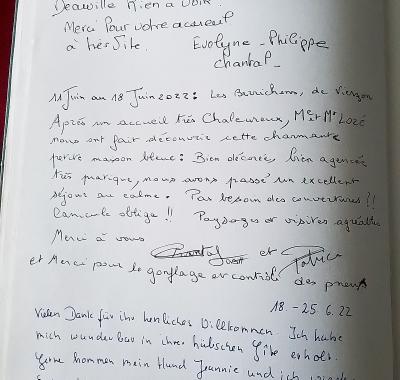 Deauville Rien à voir.
Merci Pour votre accueil
à très vite. Evelyne - Philippe
chantal -
11 Juin au 18 Juin 2022 : Les Berrichons, de Vierzon
Après un accueil très Chaleureux, Me et Mr Lozé
nous ont fait découvrir cette charmante
petite maison bleue : Bien décorée, bien agencée
très pratique, nous avons passé un excellent
séjour au calme. Pas besoin des couvertures !!
Canicule oblige !! Paysages et visites agréables
Merci à vous
Chantal et Patrice
et Merci pour le gonflage et contrôle des pneus
18. - 25.6.22
Vielen Dank für ihr herzliches Willkommen. Ich habe
mich wunderbar in ihrer hübschen Gîte erholt.
Gerne kommen mein Hund Jeannie und ich wieder